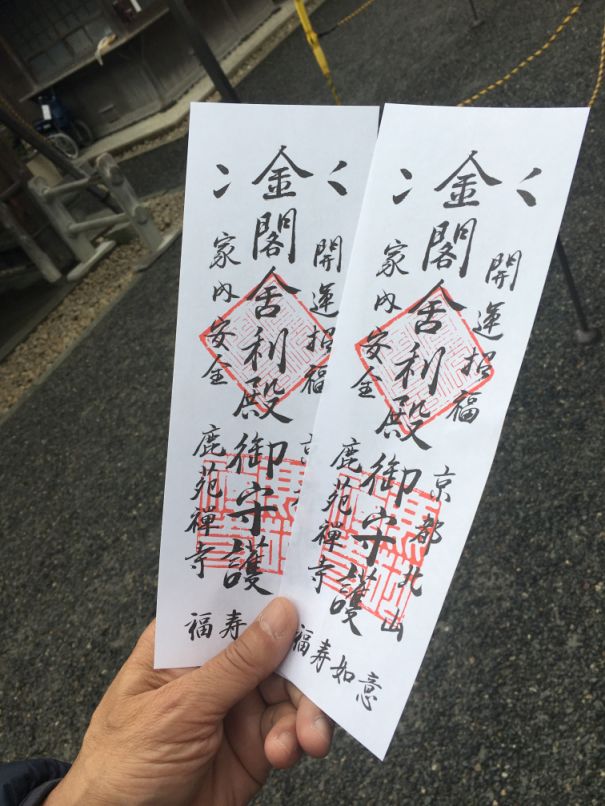 開運招福
京
金閣舎利殿御守護
家内安全
鹿苑禪寺
福寿
開運招福
京都北山
金閣舎利殿御守護
家内安全
鹿苑禪寺
福寿如意